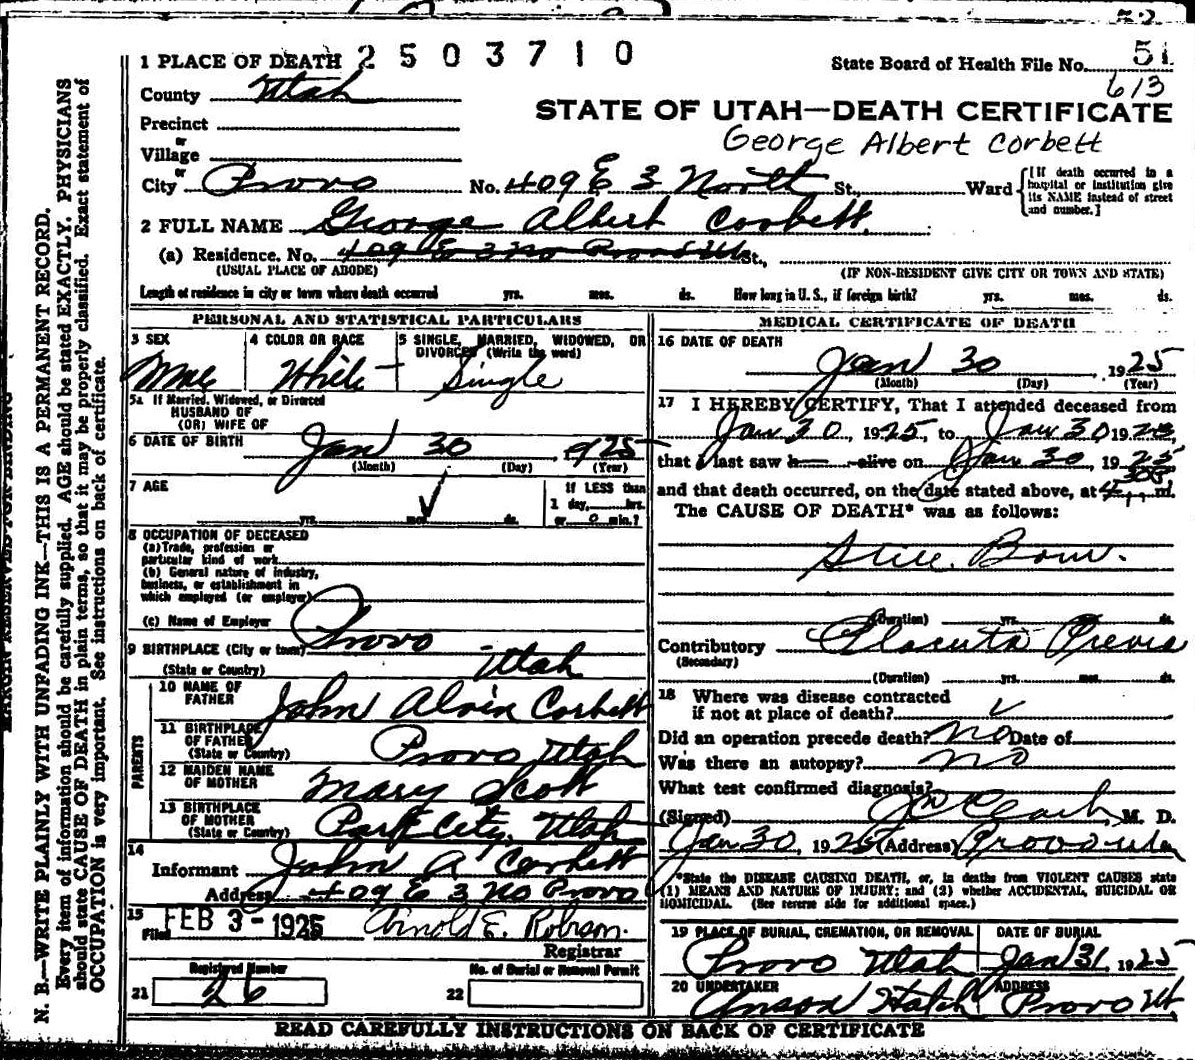 1 PLACE OF DEATH 2 5 0 3 7 1 0
State Board of Health File No. 51
613
County Utah
STATE OF UTAH—DEATH CERTIFICATE
Precinct
George Albert Corbett
or
Village
or
City Provo No. 409 E 3 North St., Ward
[If death occurred in a hospital or institution give its NAME instead of street and number.]
2 FULL NAME George Albert Corbett.
(a) Residence. No. 409 E 3 No Provo Ut St.,
(USUAL PLACE OF ABODE) (IF NON-RESIDENT GIVE CITY OR TOWN AND STATE)
Length of residence in city or town where death occurred yrs. mos. ds. How long in U. S., if foreign birth? yrs. mos. ds.
PERSONAL AND STATISTICAL PARTICULARS
3 SEX 4 COLOR OR RACE 5 SINGLE, MARRIED, WIDOWED, OR DIVORCED (Write the word)
White Single
5a If Married, Widowed, or Divorced
HUSBAND OF
(OR) WIFE OF
6 DATE OF BIRTH Jan 30 1925
(Month) (Day) (Year)
7 AGE
If LESS than
1 day, hrs.
yrs. mos. ds. or 0 min.?
8 OCCUPATION OF DECEASED
(a) Trade, profession or
particular kind of work
(b) General nature of industry,
business, or establishment in
which employed (or employer)
(c) Name of Employer
9 BIRTHPLACE (City or town) Provo
(State or Country) Utah
PARENTS
10 NAME OF FATHER John Alvin Corbett
11 BIRTHPLACE OF FATHER (State or Country) Provo Utah
12 MAIDEN NAME OF MOTHER Mary Scott
13 BIRTHPLACE OF MOTHER (State or Country) Park City, Utah
14
Informant John A Corbett
Address 409 E 3 No Provo
15
Filed FEB 3 - 1925 Arnold E. Robison.
Registrar
Registered Number No. of Burial or Removal Permit
21 26 22
MEDICAL CERTIFICATE OF DEATH
16 DATE OF DEATH
Jan 30, 1925
(Month) (Day) (Year)
17 I HEREBY CERTIFY, That I attended deceased from
Jan 30, 1925, to Jan 30 1925,
that I last saw h alive on Jan 30, 1925
and that death occurred, on the date stated above, at m.
The CAUSE OF DEATH* was as follows:
Still Born.
(Duration) yrs. mos. ds.
Contributory Placenta Previa
(Secondary)
(Duration) yrs. mos. ds.
18 Where was disease contracted
if not at place of death?
Did an operation precede death? no Date of
Was there an autopsy? no
What test confirmed diagnosis?
(Signed) M. D.
Jan 30, 1925 (Address) Provo Utah
*State the DISEASE CAUSING DEATH, or, in deaths from VIOLENT CAUSES state
(1) MEANS AND NATURE OF INJURY; and (2) whether ACCIDENTAL, SUICIDAL OR
HOMICIDAL. (See reverse side for additional space.)
19 PLACE OF BURIAL, CREMATION, OR REMOVAL DATE OF BURIAL
Provo Utah Jan 31, 1925
20 UNDERTAKER ADDRESS
Anson Hatch Provo Ut.
READ CAREFULLY INSTRUCTIONS ON BACK OF CERTIFICATE
MARGIN RESERVED FOR BINDING
N. B.—WRITE PLAINLY WITH UNFADING INK—THIS IS A PERMANENT RECORD.
Every item of information should be carefully supplied. AGE should be stated EXACTLY. PHYSICIANS
should state CAUSE OF DEATH in plain terms, so that it may be properly classified. Exact statement of
OCCUPATION is very important. See instructions on back of certificate.